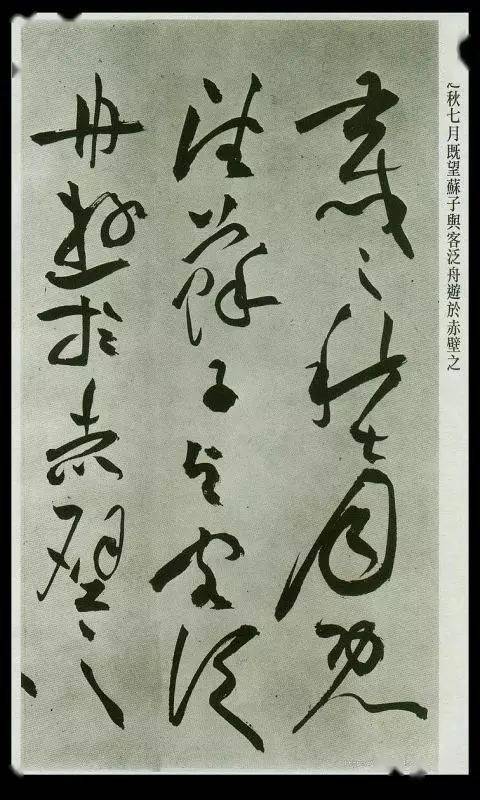 之秋七月既望蘇子與客泛舟遊於赤壁之
歲之秋七月既
望蘇子与客泛
舟遊於赤壁之